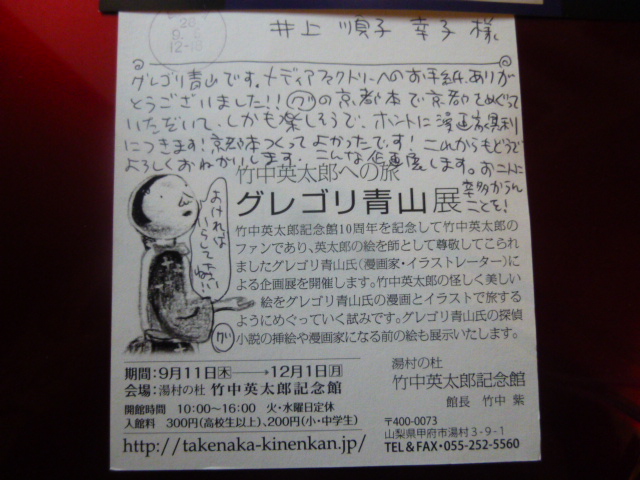 井上 順子 幸子 様
グレゴリ青山です。メディアファクトリーへのお手紙、ありが
とうございました!! の京都本で京都をめぐって
いただいて、しかも楽しそうで、ホントに漫画家冥利
につきます!京都本つくってよかったです!これからもどうぞ
よろしくおねがいします。こんな企画展します。お二人に
幸多からん
ことを!
竹中英太郎への旅
グレゴリ青山展
よければ
いらして
下さい!!
竹中英太郎記念館10周年を記念して竹中英太郎の
ファンであり、英太郎の絵を師として尊敬してこられ
ましたグレゴリ青山氏(漫画家・イラストレーター)に
よる企画展を開催します。竹中英太郎の怪しく美しい
絵をグレゴリ青山氏の漫画とイラストで旅する
ようにめぐっていく試みです。グレゴリ青山氏の探偵
小説の挿絵や漫画家になる前の絵も展示いたします。
期間:9月11日木→12月1日月
会場:湯村の杜 竹中英太郎記念館
開館時間 10:00~16:00 火・水曜日定休
入館料 300円(高校生以上)、200円(小・中学生)
http://takenaka-kinenkan.jp/
湯村の杜
竹中英太郎記念館
館長 竹中 紫
〒400-0073
山梨県甲府市湯村3-9-1
TEL&FAX・055-252-5560